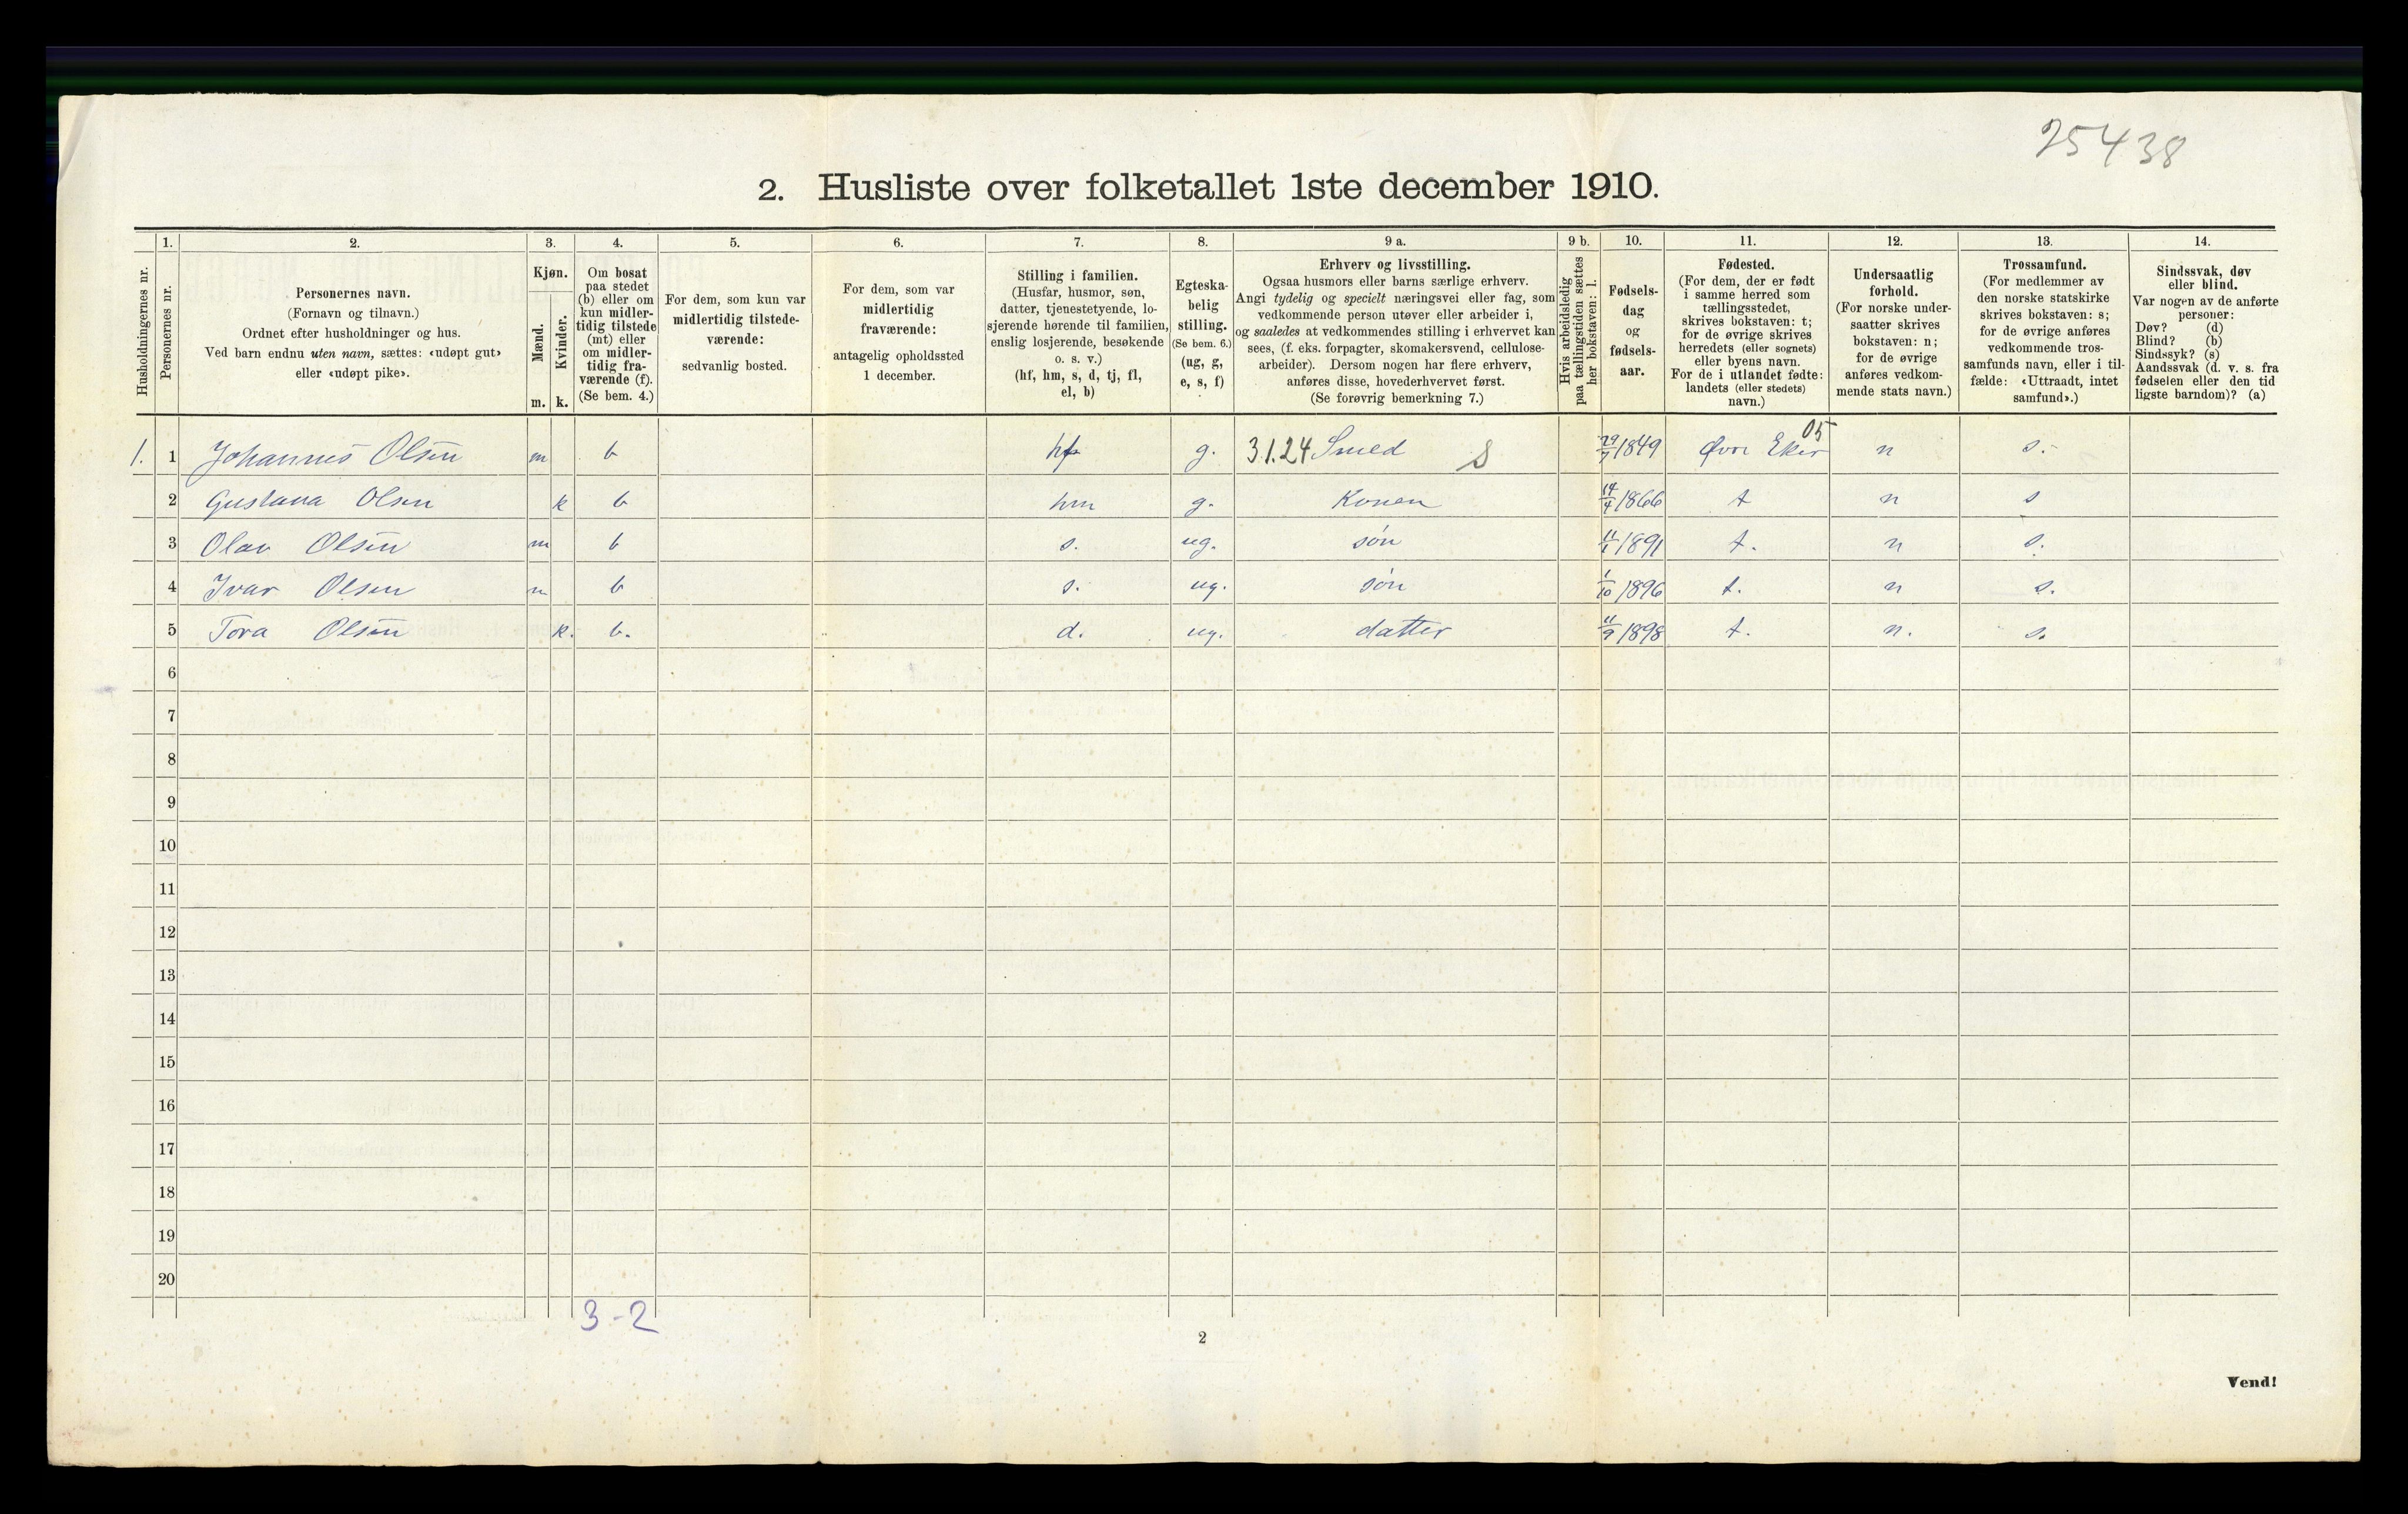 25438
2. Husliste over folketallet 1ste december 1910.
Husholdningernes nr.
1.
Personernes nr.
2.
Personernes navn.
(Fornavn og tilnavn.)
Ordnet efter husholdninger og hus.
Ved barn endnu uten navn, sættes: «udøpt gut»
eller «udøpt pike».
3.
Kjøn.
Mænd.
m.
Kvinder.
k.
4.
Om bosat
paa stedet
(b) eller om
kun midler-
tidig tilstede
(mt) eller
om midler-
tidig fra-
værende (f).
(Se bem. 4.)
5.
For dem, som kun var
midlertidig tilstede-
værende:
sedvanlig bosted.
6.
For dem, som var
midlertidig
fraværende:
antagelig opholdssted
1 december.
7.
Stilling i familien.
(Husfar, husmor, søn,
datter, tjenestetyende, lo-
sjerende hørende til familien,
enslig losjerende, besøkende
o. s. v.)
(hf, hm, s, d, tj, fl,
el, b)
8.
Egteska-
belig
stilling.
(Se bem. 6.)
(ug, g,
e, s, f)
9 a.
Erhverv og livsstilling.
Ogsaa husmors eller barns særlige erhverv.
Angi tydelig og specielt næringsvei eller fag, som
vedkommende person utøver eller arbeider i,
og saaledes at vedkommendes stilling i erhvervet kan
sees, (f. eks. forpagter, skomakersvend, cellulose-
arbeider). Dersom nogen har flere erhverv,
anføres disse, hovederhvervet først.
(Se forøvrig bemerkning 7.)
9 b.
Hvis arbeidsledig
paa tællingstiden sættes
her bokstaven: l.
10.
Fødsels-
dag
og
fødsels-
aar.
11.
Fødested.
(For dem, der er født
i samme herred som
tællingsstedet,
skrives bokstaven: t;
for de øvrige skrives
herredets (eller sognets)
eller byens navn.
For de i utlandet fødte:
landets (eller stedets)
navn.)
12.
Undersaatlig
forhold.
(For norske under-
saatter skrives
bokstaven: n;
for de øvrige
anføres vedkom-
mende stats navn.)
13.
Trossamfund.
(For medlemmer av
den norske statskirke
skrives bokstaven: s;
for de øvrige anføres
vedkommende tros-
samfunds navn, eller i til-
fælde: «Uttraadt, intet
samfund».)
14.
Sindssvak, døv
eller blind.
Var nogen av de anførte
personer:
Døv? (d)
Blind? (b)
Sindssyk? (s)
Aandssvak (d. v. s. fra
fødselen eller den tid
ligste barndom)? (a)
1. 1 Johannes Olsen m b hf g. 31.24 Smed S 29/7 1849 Øvre Eker 05 n s.
2 Gustava Olsen k b hm g. Konen 14/4 1866 t n s
3 Olav Olsen m b s. ug. søn 11/1 1891 t. n s.
4 Ivar Olsen m b s. ug. søn 1/10 1896 t. n s.
5 Tora Olsen k. b. d. ug. datter 11/9 1898 t. n. s.
6
7
8
9
10
11
12
13
14
15
16
17
18
19
20
3-2
2
Vend!